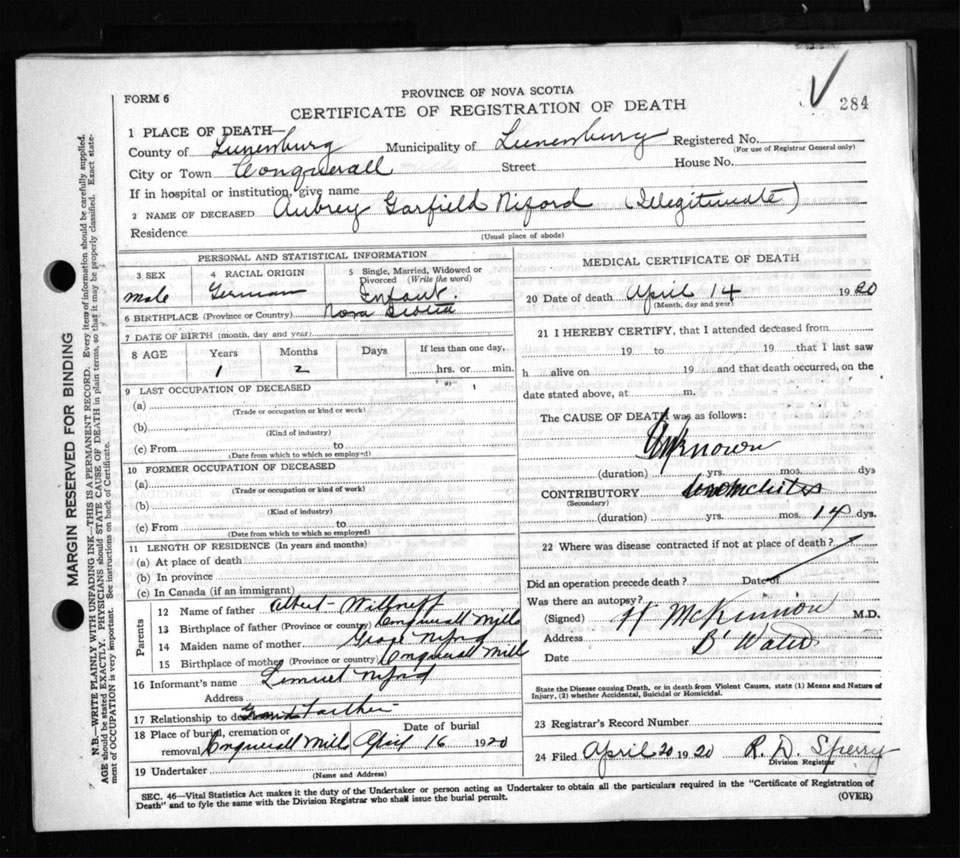 FORM 6
PROVINCE OF NOVA SCOTIA
CERTIFICATE OF REGISTRATION OF DEATH
284
1 PLACE OF DEATH—
County of Lunenburg Municipality of Lunenburg Registered No.
(For use of Registrar General only)
City or Town Conquerall Street House No.
If in hospital or institution, give name
2 NAME OF DECEASED Aubrey Garfield Niford (Illegitimate)
Residence
(Usual place of abode)
PERSONAL AND STATISTICAL INFORMATION
3 SEX
Male
4 RACIAL ORIGIN
German
5 Single, Married, Widowed or Divorced (Write the word)
Infant.
6 BIRTHPLACE (Province or Country) Nova Scotia
7 DATE OF BIRTH (month, day and year)
8 AGE Years Months Days If less than one day,
1 2 hrs. or min.
9 LAST OCCUPATION OF DECEASED
(a)
(Trade or occupation or kind of work)
(b)
(Kind of industry)
(c) From to
(Date from which to which so employed)
10 FORMER OCCUPATION OF DECEASED
(a)
(Trade or occupation or kind of work)
(b)
(Kind of industry)
(c) From to
(Date from which to which so employed)
11 LENGTH OF RESIDENCE (In years and months)
(a) At place of death
(b) In province
(c) In Canada (if an immigrant)
Parents
12 Name of father Albert
13 Birthplace of father (Province or country) Conquerall Mills
14 Maiden name of mother
15 Birthplace of mother (Province or country) Conquerall Mills
16 Informant's name Lemuel
Address
17 Relationship to deceased Grandfather
18 Place of burial, cremation or removal Conquerall Mills
Date of burial April 16 1920
19 Undertaker
(Name and Address)
MEDICAL CERTIFICATE OF DEATH
20 Date of death April 14 1920
(Month, day and year)
21 I HEREBY CERTIFY, that I attended deceased from
19 to 19 that I last saw
h alive on 19 and that death occurred, on the
date stated above, at m.
The CAUSE OF DEATH was as follows:
Unknown
(duration) yrs. mos. dys
CONTRIBUTORY
(Secondary)
(duration) yrs. mos. 14 dys.
22 Where was disease contracted if not at place of death?
Did an operation precede death? Date of
Was there an autopsy?
(Signed) H McKinnon M.D.
Address B'Water
Date
State the Disease causing Death, or in death from Violent Causes, state (1) Means and Nature of
Injury, (2) whether Accidental, Suicidal or Homicidal.
23 Registrar's Record Number
24 Filed April 20 1920 R. D. Sperry
Division Registrar
SEC. 46—Vital Statistics Act makes it the duty of the Undertaker or person acting as Undertaker to obtain all the particulars required in the "Certificate of Registration of
Death" and to fyle the same with the Division Registrar who shall issue the burial permit.
(OVER)
MARGIN RESERVED FOR BINDING
N.B.—WRITE PLAINLY WITH UNFADING INK—THIS IS A PERMANENT RECORD. Every item of information should be carefully supplied.
AGE should be stated EXACTLY. PHYSICIANS should STATE CAUSE OF DEATH in plain terms, so that it may be properly classified. Exact state-
ment of OCCUPATION is very important. See instructions on back of Certificate.